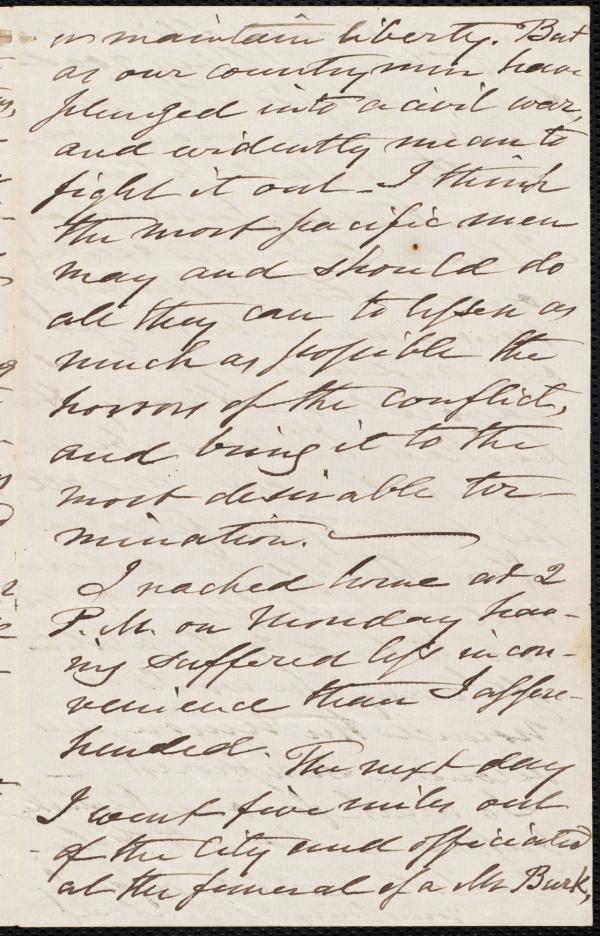 or maintain liberty. But
as our countrymen have
plunged into a civil war,
and evidently mean to
fight it out - I think
the most pacific men
may and should do
all they can to lessen as
much as possible the
horrors of the conflict,
and bring it to the
most desirable ter-
mination.
I reached home at 2
P.M. on Monday hav-
ing suffered less incon-
venience than I appre-
hended. The next day
I went five miles out
of the City and officiated
at the funeral of a Mr Burk,